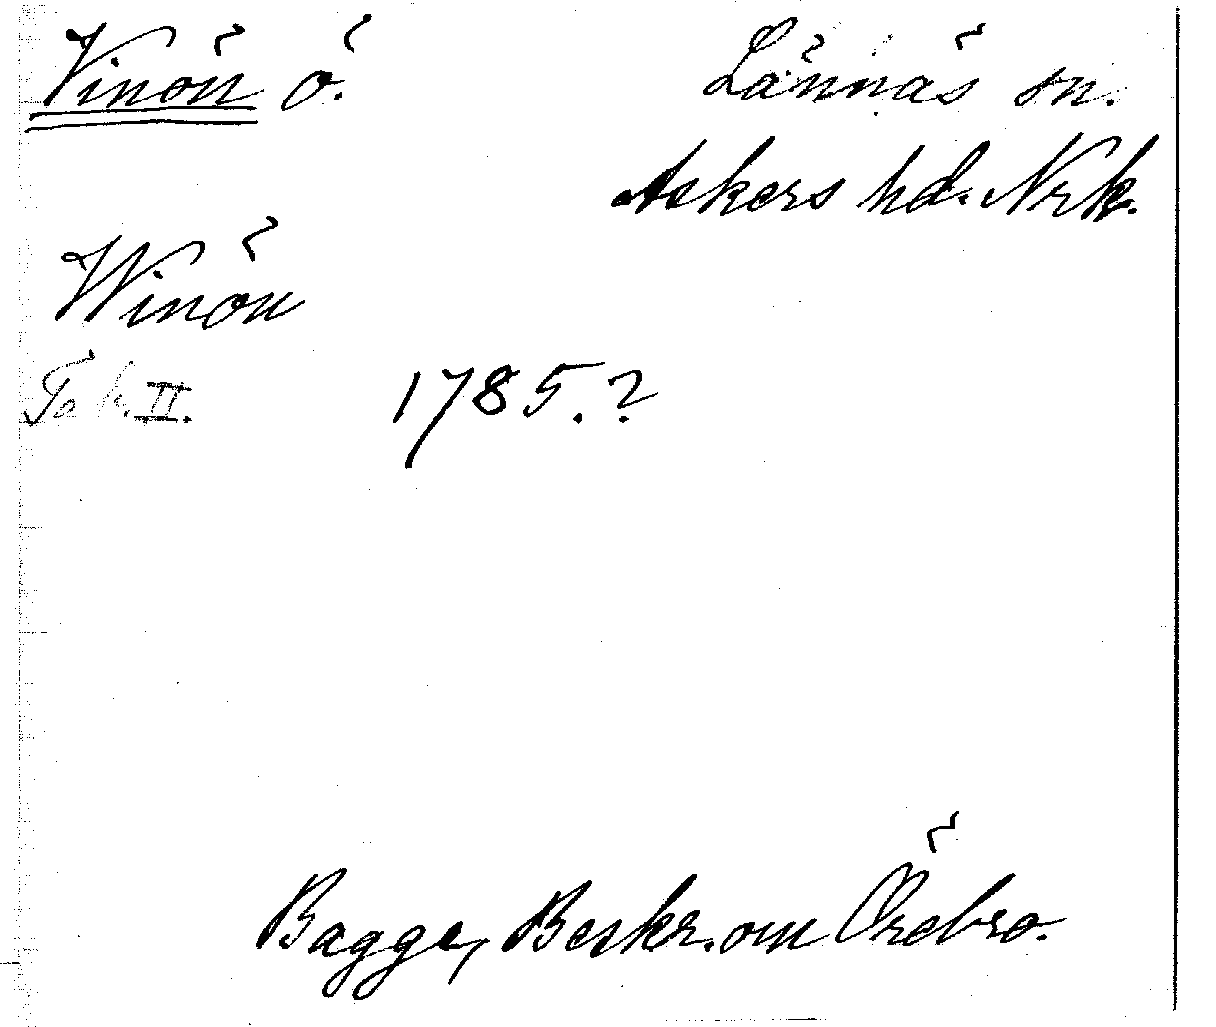 Vinön ö. Lännäs sn.
Askers hd. Nrk.
Winön
Tab. II. 1785.?
Bagge, Beskr. om Örebro.